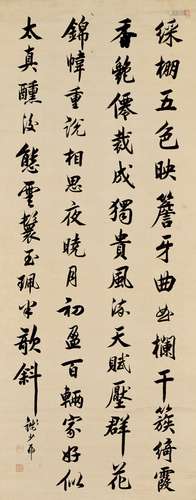 綵棚五色映簷牙曲曲欄干簇綺霞
香艷僊裁成獨貴風流天賦壓群花
錦幃重說相思夜曉月初盈百輛家好似
太真醺後態雲鬟玉珮半欹斜